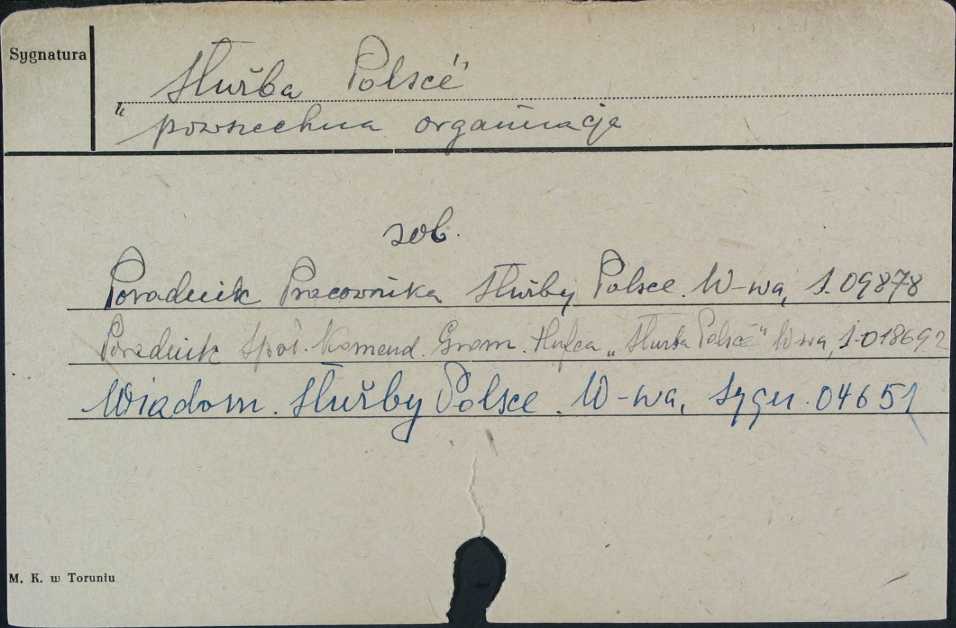 Sygnatura
„Służba Polsce"
powszechna organizacja
zob.
Poradnik Pracownika Służby Polsce. W-wa, S. 09878
Poradnik Społ. Komend. Grom. Hufca „Służba Polsce" W-wa, S-018692
Wiadom. Służby Polsce. W-wa, Sygn. 04651
M. K. w Toruniu